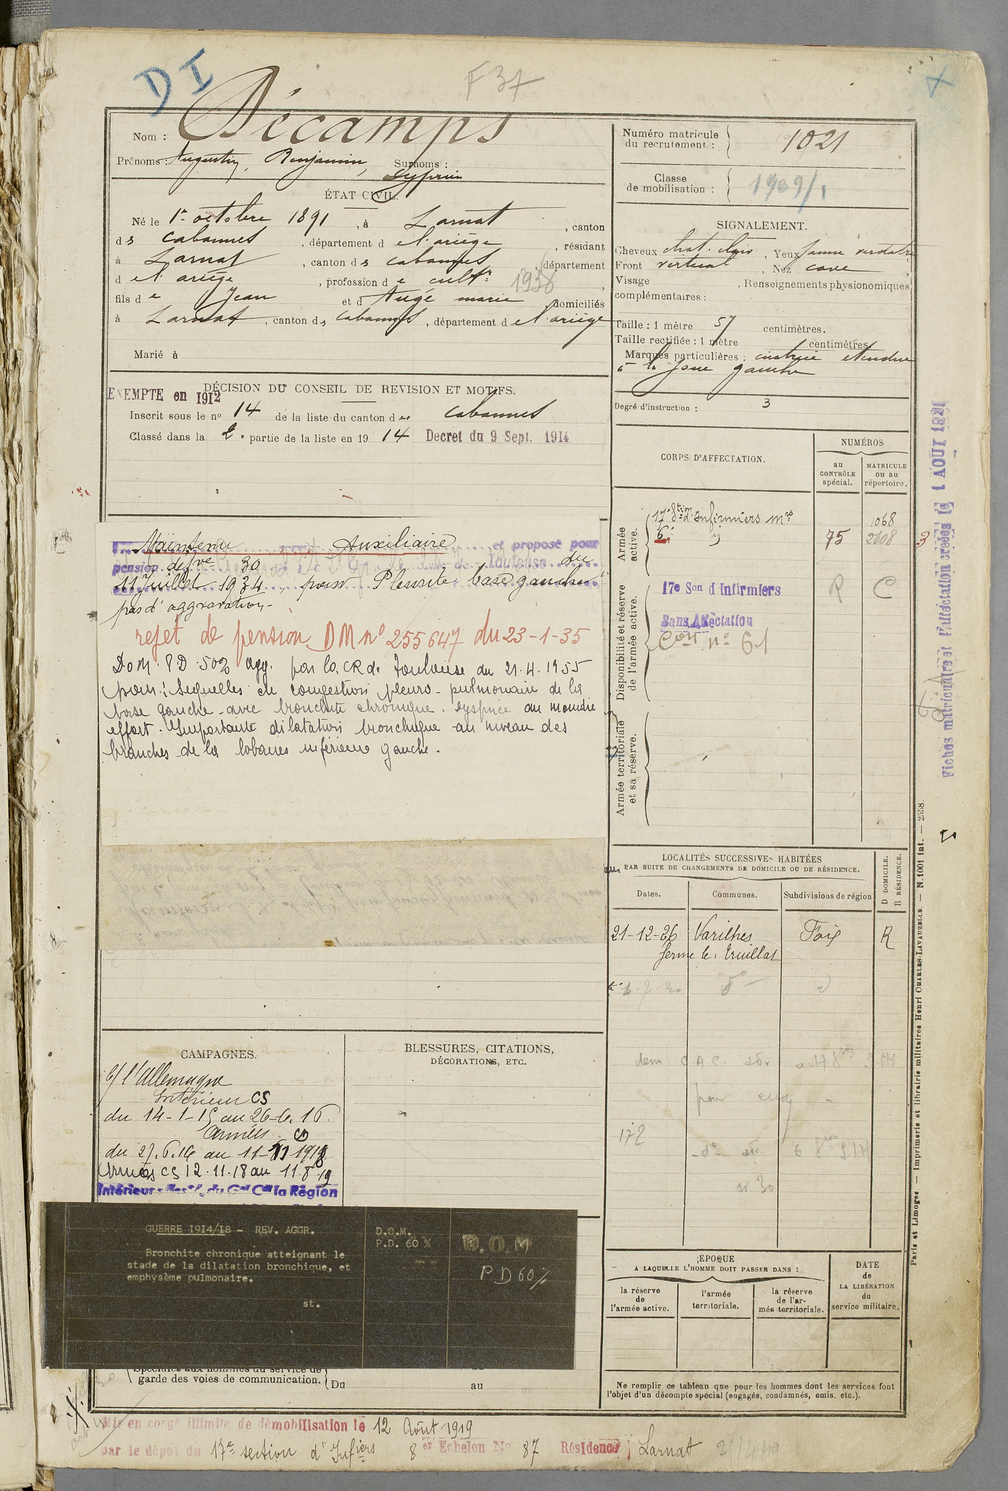 DI
F 37
Nom : Décamps
Prénoms : Augustin, Benjamin, Surnoms :
Cyprien
ÉTAT CIVIL.
Né le 1er octobre 1891, à Larnat, canton
des cabannes, département de l'ariège, résidant
à Larnat, canton des cabannes, département
de l'ariège, profession de cultr 1938
fils de Jean et d'Augé marie domiciliés
à Larnat, canton des cabannes, département de l'ariège
Marié à
DÉCISION DU CONSEIL DE REVISION ET MOTIFS.
EXEMPTÉ en 1912
Inscrit sous le no 14 de la liste du canton des cabannes
Classé dans la 2e partie de la liste en 1914 Decret du 9 Sept. 1914
Maintenu Auxiliaire et proposé pour
pension défve 30 de Toulouse du
11 Juillet 1934, pour Pleurite base gauche
pas d'aggravation.
rejet de pension DM no 255647 du 23-1-35
DOM PD 50% agg. par la CR de Toulouse du 21.4.1955
pour : Séquelles de congestion pleuro-pulmonaire de la
base gauche avec bronchite chronique. dyspnée au moindre
effort. Importante dilatation bronchique au niveau des
branches de la lobaire inférieure gauche.
CAMPAGNES.
c/ l'Allemagne
Intérieur CS
du 14-1-15 au 26-6.16
Armées CD
du 27.6.16 au 11-11 1918
Armées CS 12.11.18 au 11.8.19
BLESSURES, CITATIONS,
DÉCORATIONS, ETC.
GUERRE 1914/18 - REV. AGGR.
Bronchite chronique atteignant le
stade de la dilatation bronchique, et
emphysème pulmonaire.
st.
D.O.M.
P.D. 60 %
D.O.M
PD 60%
Spéciales aux hommes du service de
garde des voies de communication.
Du au
Mis en congé illimité de démobilisation le 12 Août 1919
par le dépôt du 17e section d'Infiers 8er Echelon No 87 Résidence ; Larnat
Numéro matricule
du recrutement :
1021
Classe
de mobilisation :
1909/1
SIGNALEMENT.
Cheveux chat. clairs, Yeux jaune verdatre
Front vertical, Nez cave
Visage , Renseignements physionomiques
complémentaires :
Taille : 1 mètre 57 centimètres.
Taille rectifiée : 1 mètre centimètres.
Marques particulières : cicatrice étendue
à la joue gauche
Degré d'instruction : 3
CORPS D'AFFECTATION.
NUMÉROS
au
CONTRÔLE
spécial.
MATRICULE
OU au
répertoire.
Armée
active.
17e Son d'Infirmiers mres
75
1068
2608
3
Disponibilité et réserve
de l'armée active.
17e Son d Infirmiers
R
C
Sans Affectation
no 61
Armée territoriale
et sa réserve.
LOCALITÉS SUCCESSIVES HABITÉES
PAR SUITE DE CHANGEMENTS DE DOMICILE OU DE RÉSIDENCE.
Dates.
Communes.
Subdivisions de région
D DOMICILE.
R RÉSIDENCE.
21-12-26 Varilhes Foix R
ferme le Cruillat
172
ÉPOQUE
A LAQUELLE L'HOMME DOIT PASSER DANS :
la réserve
de
l'armée active.
l'armée
territoriale.
la réserve
de l'ar-
mée territoriale.
DATE
de
LA LIBÉRATION
du
service militaire.
Ne remplir ce tableau que pour les hommes dont les services font
l'objet d'un décompte spécial (engagés, condamnés, omis, etc.).
Fiches matriculaire et d'affectation créées le 1 AOÛT 1921
Paris et Limoges. — Imprimerie et librairie militaires Henri CHARLES-LAVAUZELLE. — N. 1001 int.